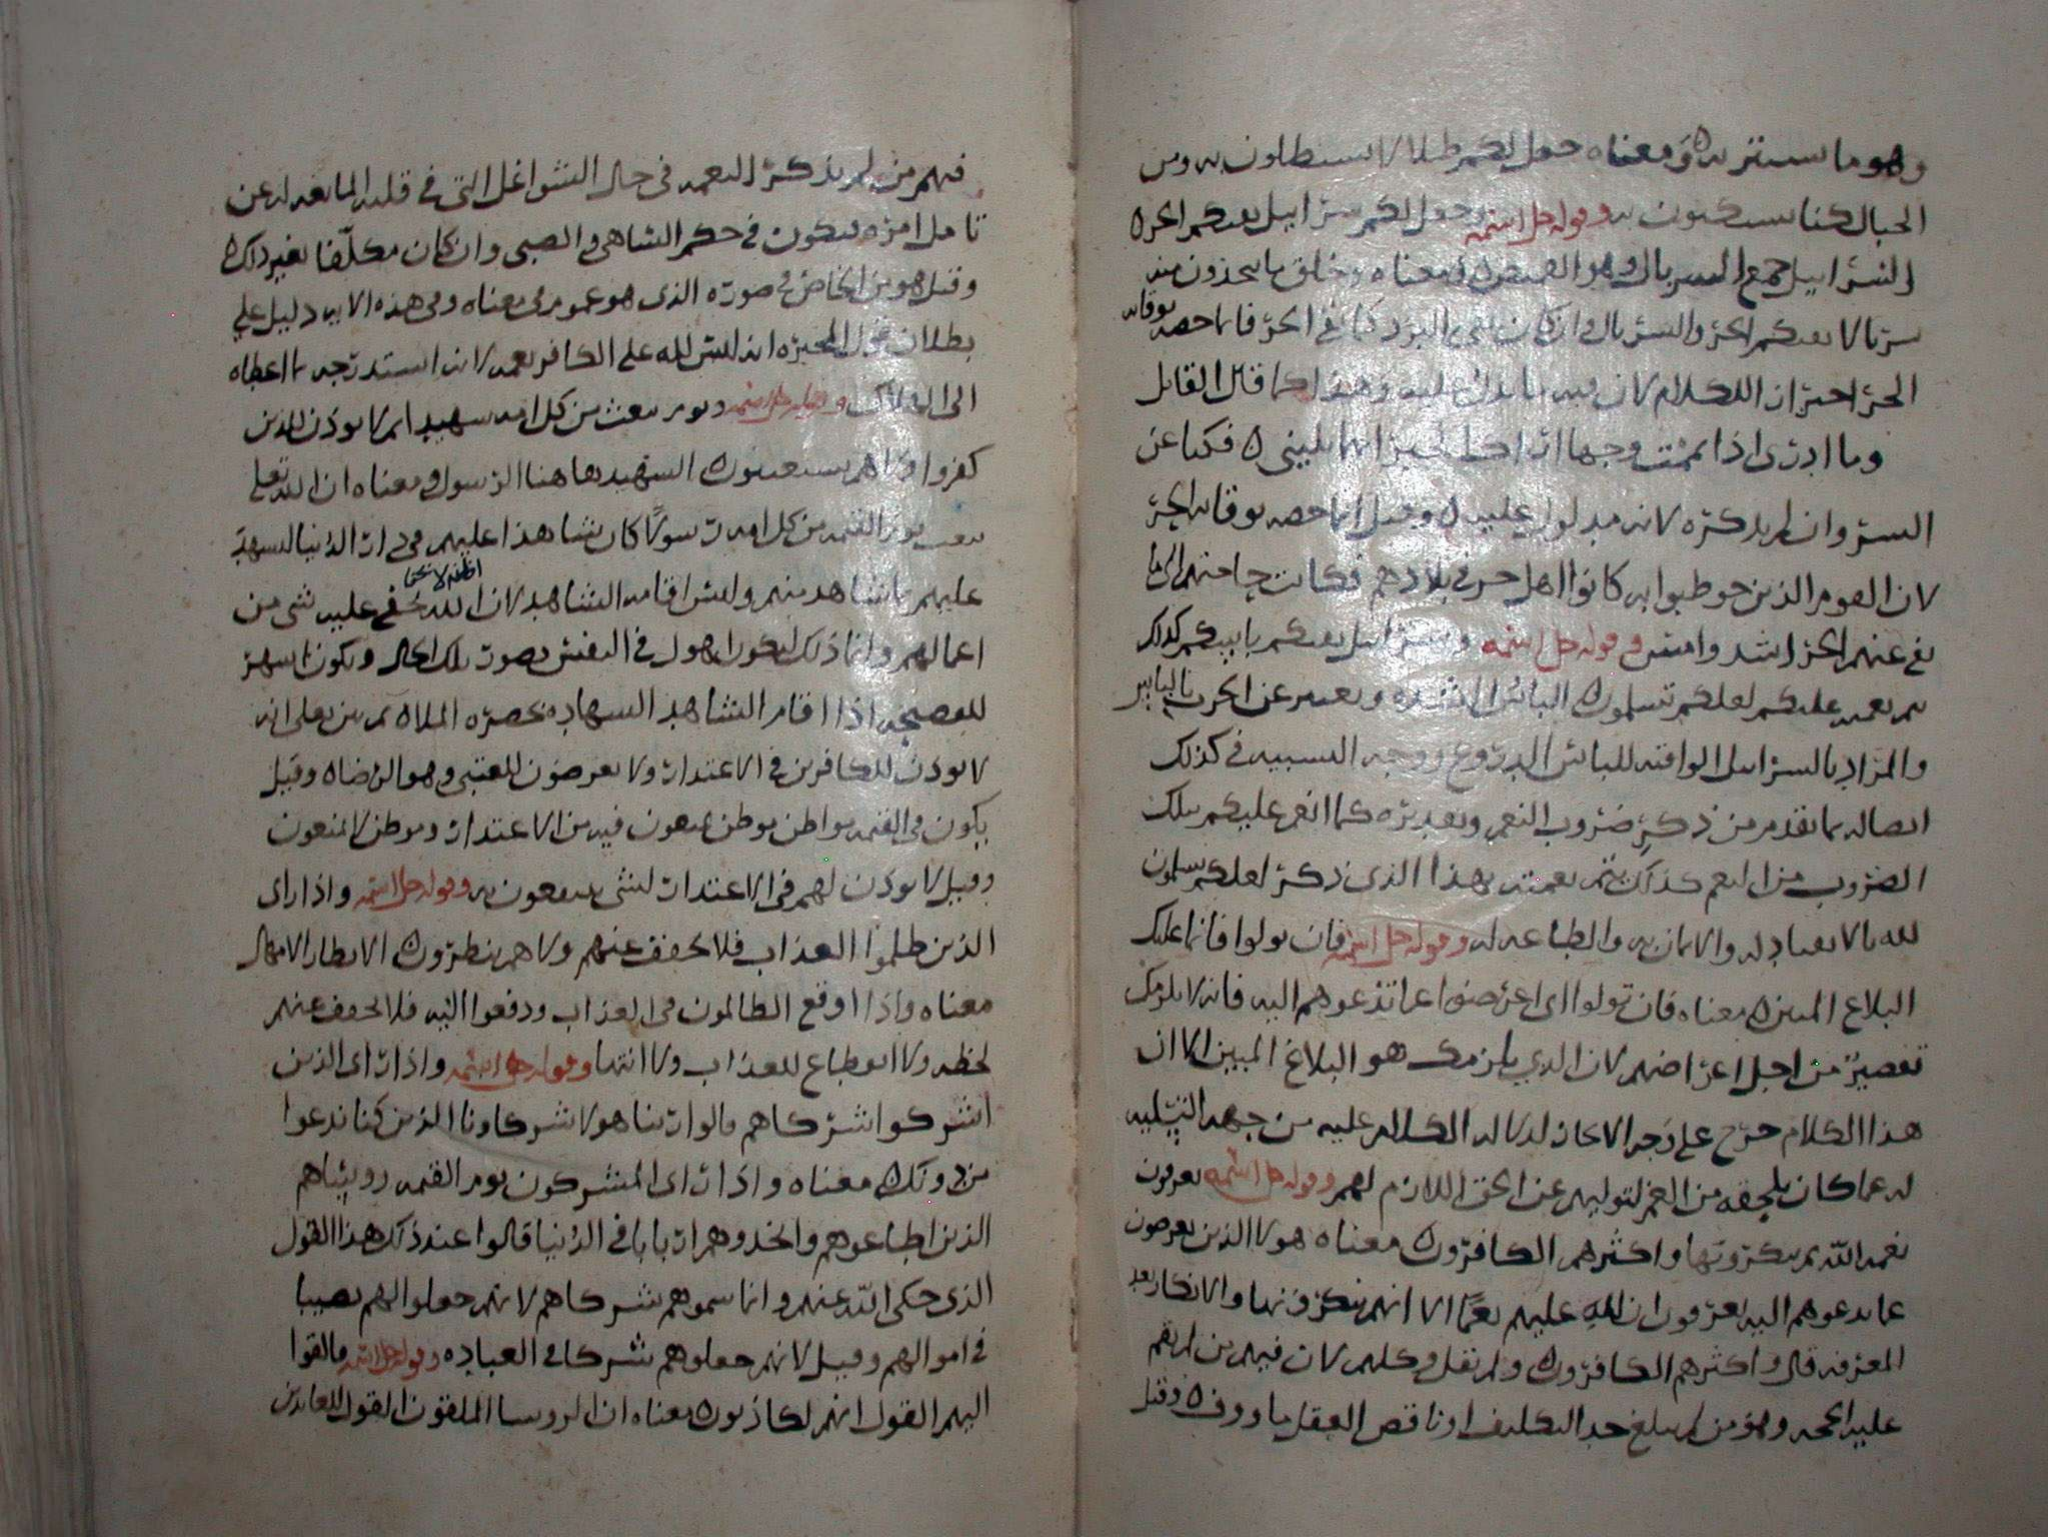 وهو ما يستتر به ه ومعناه جعل لكم ظلالا تستظلون به ومن
الجبال كنا تستكنون به وقوله جل اسمه وجعل لكم سرابيل تقيكم الحر ه
السرابيل جمع السربال وهو القميص ه ومعناه وخلق ما تتخذون منه
سربالا يقيكم الحر والسربال وان كان يقي البرد كما يقي الحر فانما خصه بوقايه
الحر لان في الكلام لان فيه ما يدل عليه وهذا كما قال القايل
وما ادرى اذا يممت وجها اريد الخير ايهما يليني ه فكنا عن
الشر وان لم يذكره لانه مدلول عليه ه وقيل انما خصه بوقايه الحر
لان القوم الذين خوطبوا به كانوا اهل حر في بلادهم فكانت حاجتهم الى ما
يقي عنهم الحر اشد وامس وقوله جل اسمه وسرابيل تقيكم باسكم كذلك
يتم نعمته عليكم لعلكم تسلمون ه الباس الشده ويعبر عن الحرب بالباس
والمراد بالسرابيل الواقيه للباس الدروع ووجه التشبيه في كذلك
اتصاله بما تقدم من ذكر ضروب النعم وتقديره كما انعم عليكم بتلك
الضروب من النعم كذلك يتم نعمته بهذا الذى ذكر لعلكم تسلمون
لله بالانقياد له والايمان به والطاعه له وقوله جل اسمه فان تولوا فانما عليك
البلاغ المبين ه معناه فان تولوا اى اعرضوا عما تدعوهم اليه فانه لا يلزمك
تقصير من اجل اعراضهم لان الذي يلزمك هو البلاغ المبين الا ان
هذا الكلام خرج على وجه الايجاز لدلاله الكلام عليه من جهه التسليه
له عما كان يلحقه من الغم لتوليهم عن الحق اللازم لهم وقوله جل اسمه يعرفون
نعمه الله ثم ينكرونها واكثرهم الكافرون ه معناه هولا الذين يعرضون
عما تدعوهم اليه يعرفون ان لله عليهم نعما الا انهم ينكرونها والانكار بعد
المعرفه قال واكثرهم الكافرون ه ولم يقل وكلهم لان فيهم من لم تقم
عليه الحجه وهو من لم يبلغ حد التكليف او ناقص العقل ماووف ه وقيل
فيهم من لم يذكر النعمه في حال الشواغل التي في قلبه المانعه له عن
تامل امره فيكون في حكم الساهي والصبي وان كان مكلفا بغير ذلك ه
وقيل هو من الخاص في صوره الذى هو عموم في معناه وفي هذه الايه دليل على
بطلان قول المجبره انه ليس لله على الكافر نعمه لانه استدرجه بما اعطاه
الى الهلاك وقوله جل اسمه ويوم نبعث من كل امه شهيدا ثم لا يوذن للذين
كفروا ولا هم يستعتبون ه الشهيد هاهنا الرسول ومعناه ان الله تعلى
يبعث يوم القيمه من كل امه رسولا كان شاهدا عليهم في دار الدنيا ليشهد
عليهم بما شاهد منهم وليس اقامه الشاهد لان الله يخفى عليه شى من
اظنه لا يخفا
اعمالهم وانما ذلك ليكون اهول في النفس بصوت تلك الحال ويكون اشهر
للفضيحه اذا اقام الشاهد الشهاده بحضره الملاه ثم بين تعلى انه
لا يوذن للكافرين في الاعتذار ولا يعرضون للعتبى وهو الرضاه وقيل
يكون في القيمه مواطن موطن يمنعون فيه من الاعتذار وموطن لا يمنعون
وقيل لا يوذن لهم في الاعتذار لشى ينتفعون به وقوله جل اسمه واذا راى
الذين ظلموا العذاب فلا يخفف عنهم ولا هم ينظرون ه الانظار الامهال
معناه واذا اوقع الظالمون في العذاب ودفعوا اليه فلا يخفف عنهم
لحظه ولا انقطاع للعذاب ولا انتها وقوله جل اسمه واذا راى الذين
اشركوا شركاهم قالوا ربنا هولا شركاونا الذين كنا ندعوا
من دونك ه معناه واذا راى المشركون يوم القيمه روساهم
الذين اطاعوهم واتخذوهم اربابا في الدنيا قالوا عند ذلك هذا القول
الذى حكى الله عنهم وانما سموهم شركاهم لانهم جعلوا لهم نصيبا
في اموالهم وقيل لانهم جعلوهم شركا في العباده وقوله جل اسمه فالقوا
اليهم القول انهم لكاذبون ه معناه ان الروسا الملقون القول للعابدين